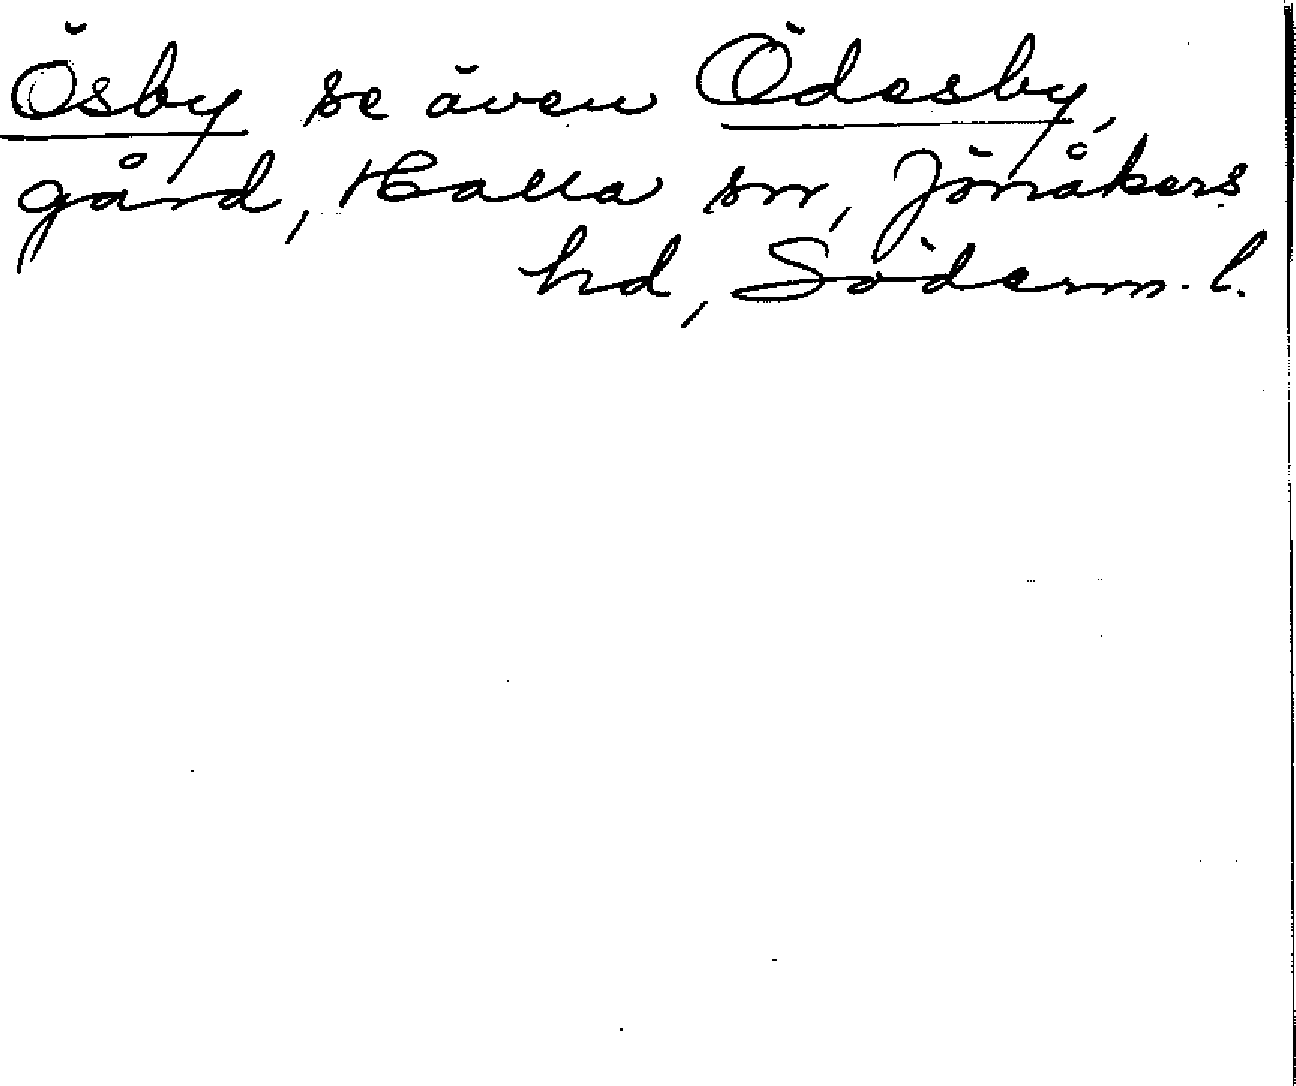 Ösby se även Ödesby,
gård, Halla sn, Jönåkers
hd, Söderm. l.